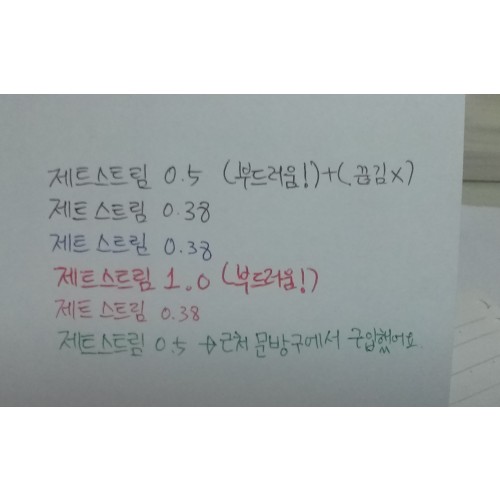 제트스트림 0.5 (부드러움!)+(끊김X)
제트스트림 0.38
제트스트림 0.38
제트스트림 1.0 (부드러움!)
제트스트림 0.38
제트스트림 0.5 → 근처 문방구에서 구입했어요